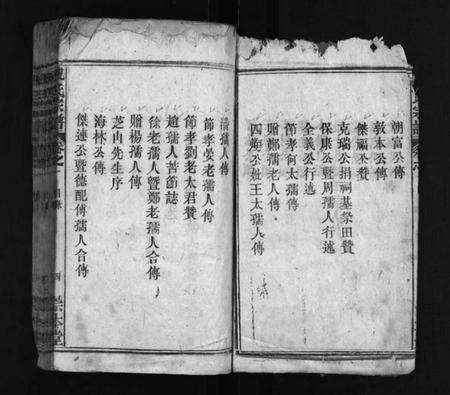 朝富公傳
敦本公傳
傑福公贊
克瑞公捐祠基祭田贊
保康公暨周孺人行述
全義公行述
節孝何太孺傳
贈鄭孺老人傳
四㛤公妣王太孺人傳
孺人傳
節孝晏老孺人傳
節孝劉老太君贊
趙孺人苦節誌
徐老孺人暨鄭老孺人合傳
贈楊孺人傳
芝山先生序
海林公傳
傑連公暨德配傅孺人合傳
目錄
四
敦本堂